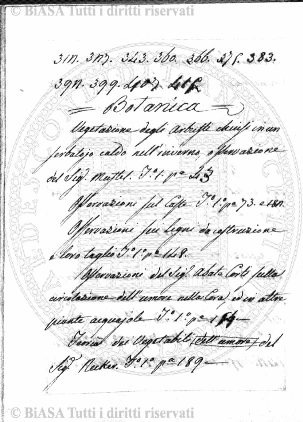 © BiASA Tutti i diritti riservati
311. 317. 343. 360. 366. 375. 383.
391. 399. 407. 415.
= Botanica =
Vegetazione degli Arbusti chiusi in un
serbatojo caldo nell'inverno, osservazione
del Sig. Mustel. T.° 1. p.ª 23
Osservazioni sul Caffe T.° 1.° p.ª 73. e
Osservazione su Legni da costruzione
e loro taglio T.° 1.° p.ª 148.
Osservazioni del Sig.e Abate Corti sulla
circolazione dell'umore nella Cara, ed in altre
piante acquajole T.° 1.° p.ª
Teoria dei Vegetabili, dell'umore del
Sig.e T.° 1.° p.ª 189 =
© BiASA Tutti i diritti riservati